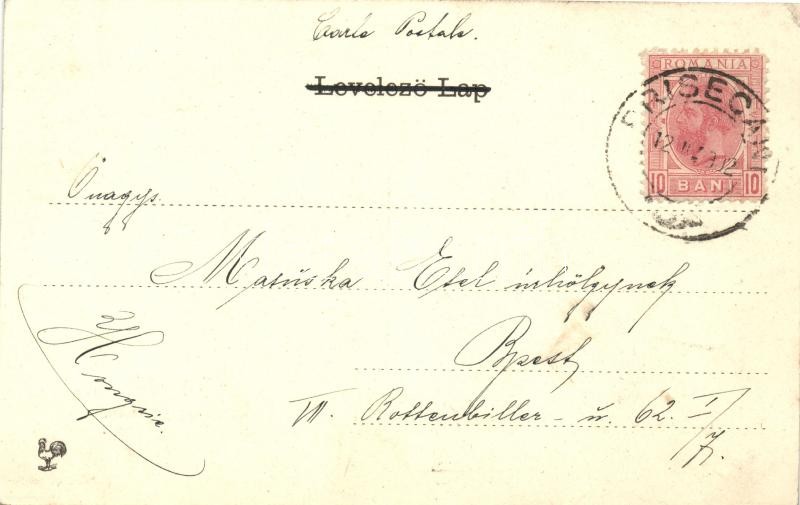 Carte Postale.
Levelező Lap
ROMANIA
10 BANI 10
Önagys.
Masúska Etel úrhölgynek
Bpest
VII. Rottenbiller - u. 62. I/7.
Hongrie.